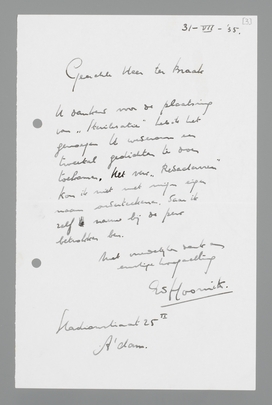 31-VII-'35.
Geachte Heer ter Braak
U dankend voor de plaatsing
van "Huilsatie" heb ik het
genoegen U wederom een
tweetal gedichten te doen
toekomen. Het vers
kon ik niet met mijn eigen
naam onderteekenen. Daar ik
zelf nauw bij de pers
betrokken ben.
Met vriendelijken dank en
eerbiedige hoogachting
Ed Hoornik.
Stadionstraat 25 II
A'dam.